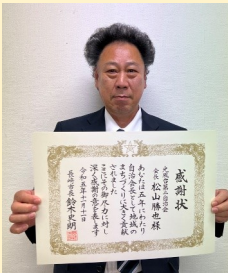 感謝状
会長 松山勝也様
あなたは五年にわたり
自治会長として地域の
まちづくりに大きく貢献
されました
ここにその御尽力に対し
深く感謝の意を表します
長崎市長 鈴木史朗